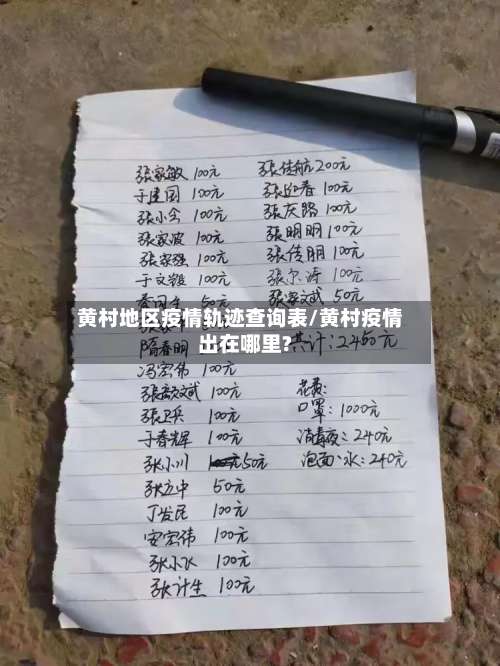 张家敏 100元
张佳航 200元
于建国 100元
张迎春 100元
张小会 100元
张庆路 100元
张家波 100元
张明明 100元
张家强 100元
张传朋 100元
于文镪 100元
张尔涛 100元
50元
张家武 50元
黄村地区疫情轨迹查询表/黄村疫情
出在哪里?
隋春明
共计:2450元
冯宏伟 100元
张毅文武 100元
花费:
张卫兵 100元
口罩:1000元
于春辉 100元
消毒液:240元
张小川 50元
泡面、水:240元
张立中 50元
丁发民 100元
安宏伟 100元
张小飞 100元
张计生 100元